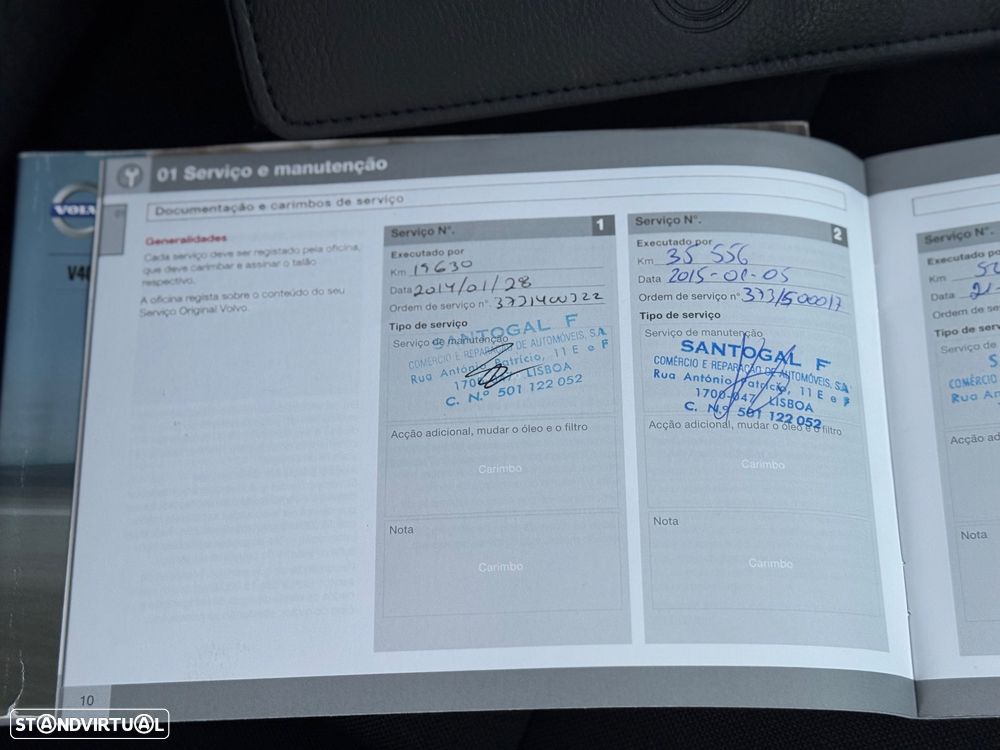 VOLV
V40
01 Serviço e manutenção
01
Documentação e carimbos de serviço
Generalidades
Cada serviço deve ser registado pela oficina,
que deve carimbar e assinar o talão
respectivo.
A oficina regista sobre o conteúdo do seu
Serviço Original Volvo.
Serviço N°. 1
Executado por
Km 19630
Data 2014/01/28
Ordem de serviço n°.
Tipo de serviço
Serviço de manutenção
SANTOGAL F
COMÉRCIO E REPARAÇÃO DE AUTOMÓVEIS, S.A
Rua António Patrício, 11 E e F
1700-047 LISBOA
C. N.º 501 122 052
Acção adicional, mudar o óleo e o filtro
Carimbo
Nota
Carimbo
Serviço N°. 2
Executado por
Km 35 556
Data 2015-01-05
Ordem de serviço n° 373/500017
Tipo de serviço
Serviço de manutenção
SANTOGAL F
COMÉRCIO E REPARAÇÃO DE AUTOMÓVEIS, S.A
Rua António Patrício, 11 E e F
1700-047 LISBOA
C. N.º 501 122 052
Acção adicional, mudar o óleo e o filtro
Carimbo
Nota
Carimbo
Serviço N°.
Executado po
Km
Data 21-
Ordem de se
Tipo de serv
Serviço de
S
COMÉRCIO
Rua An
Acção ad
Nota
10
STANDVIRTUAL